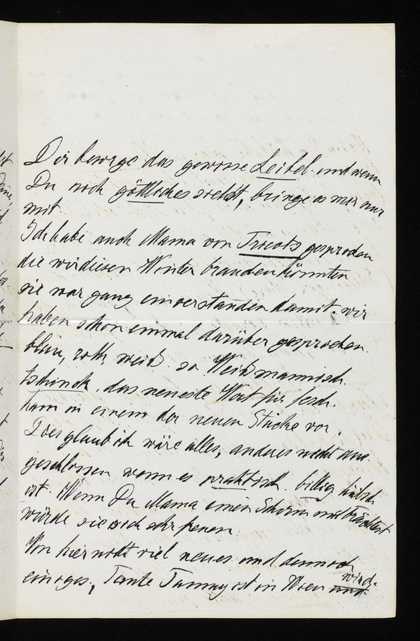 Dir besorge das gewisse Leibel und wenn
Du noch göttliches siehst, bringe es mir nur
mit.
Ich habe auch Mama von Tricots gesprochen
die wir diesen Winter brauchen könnten
sie war ganz einverstanden damit. wir
haben schon einmal darüber gesprochen
blau, roth, weiß. so Weismannisch.
tschinck. das neueste Wort für fesch.
kam in einem der neuen Stücke vor.
Dies glaub ich wäre alles, anderes nicht aus-
geschlossen wenn es praktisch, billig hübsch
ist. Wenn Du Mama einen Schirm mitbrächtest
würde sie sich sehr freuen.
Von hier nicht viel neues und dennoch
einiges, Tante Fanny ist in Wien und wird